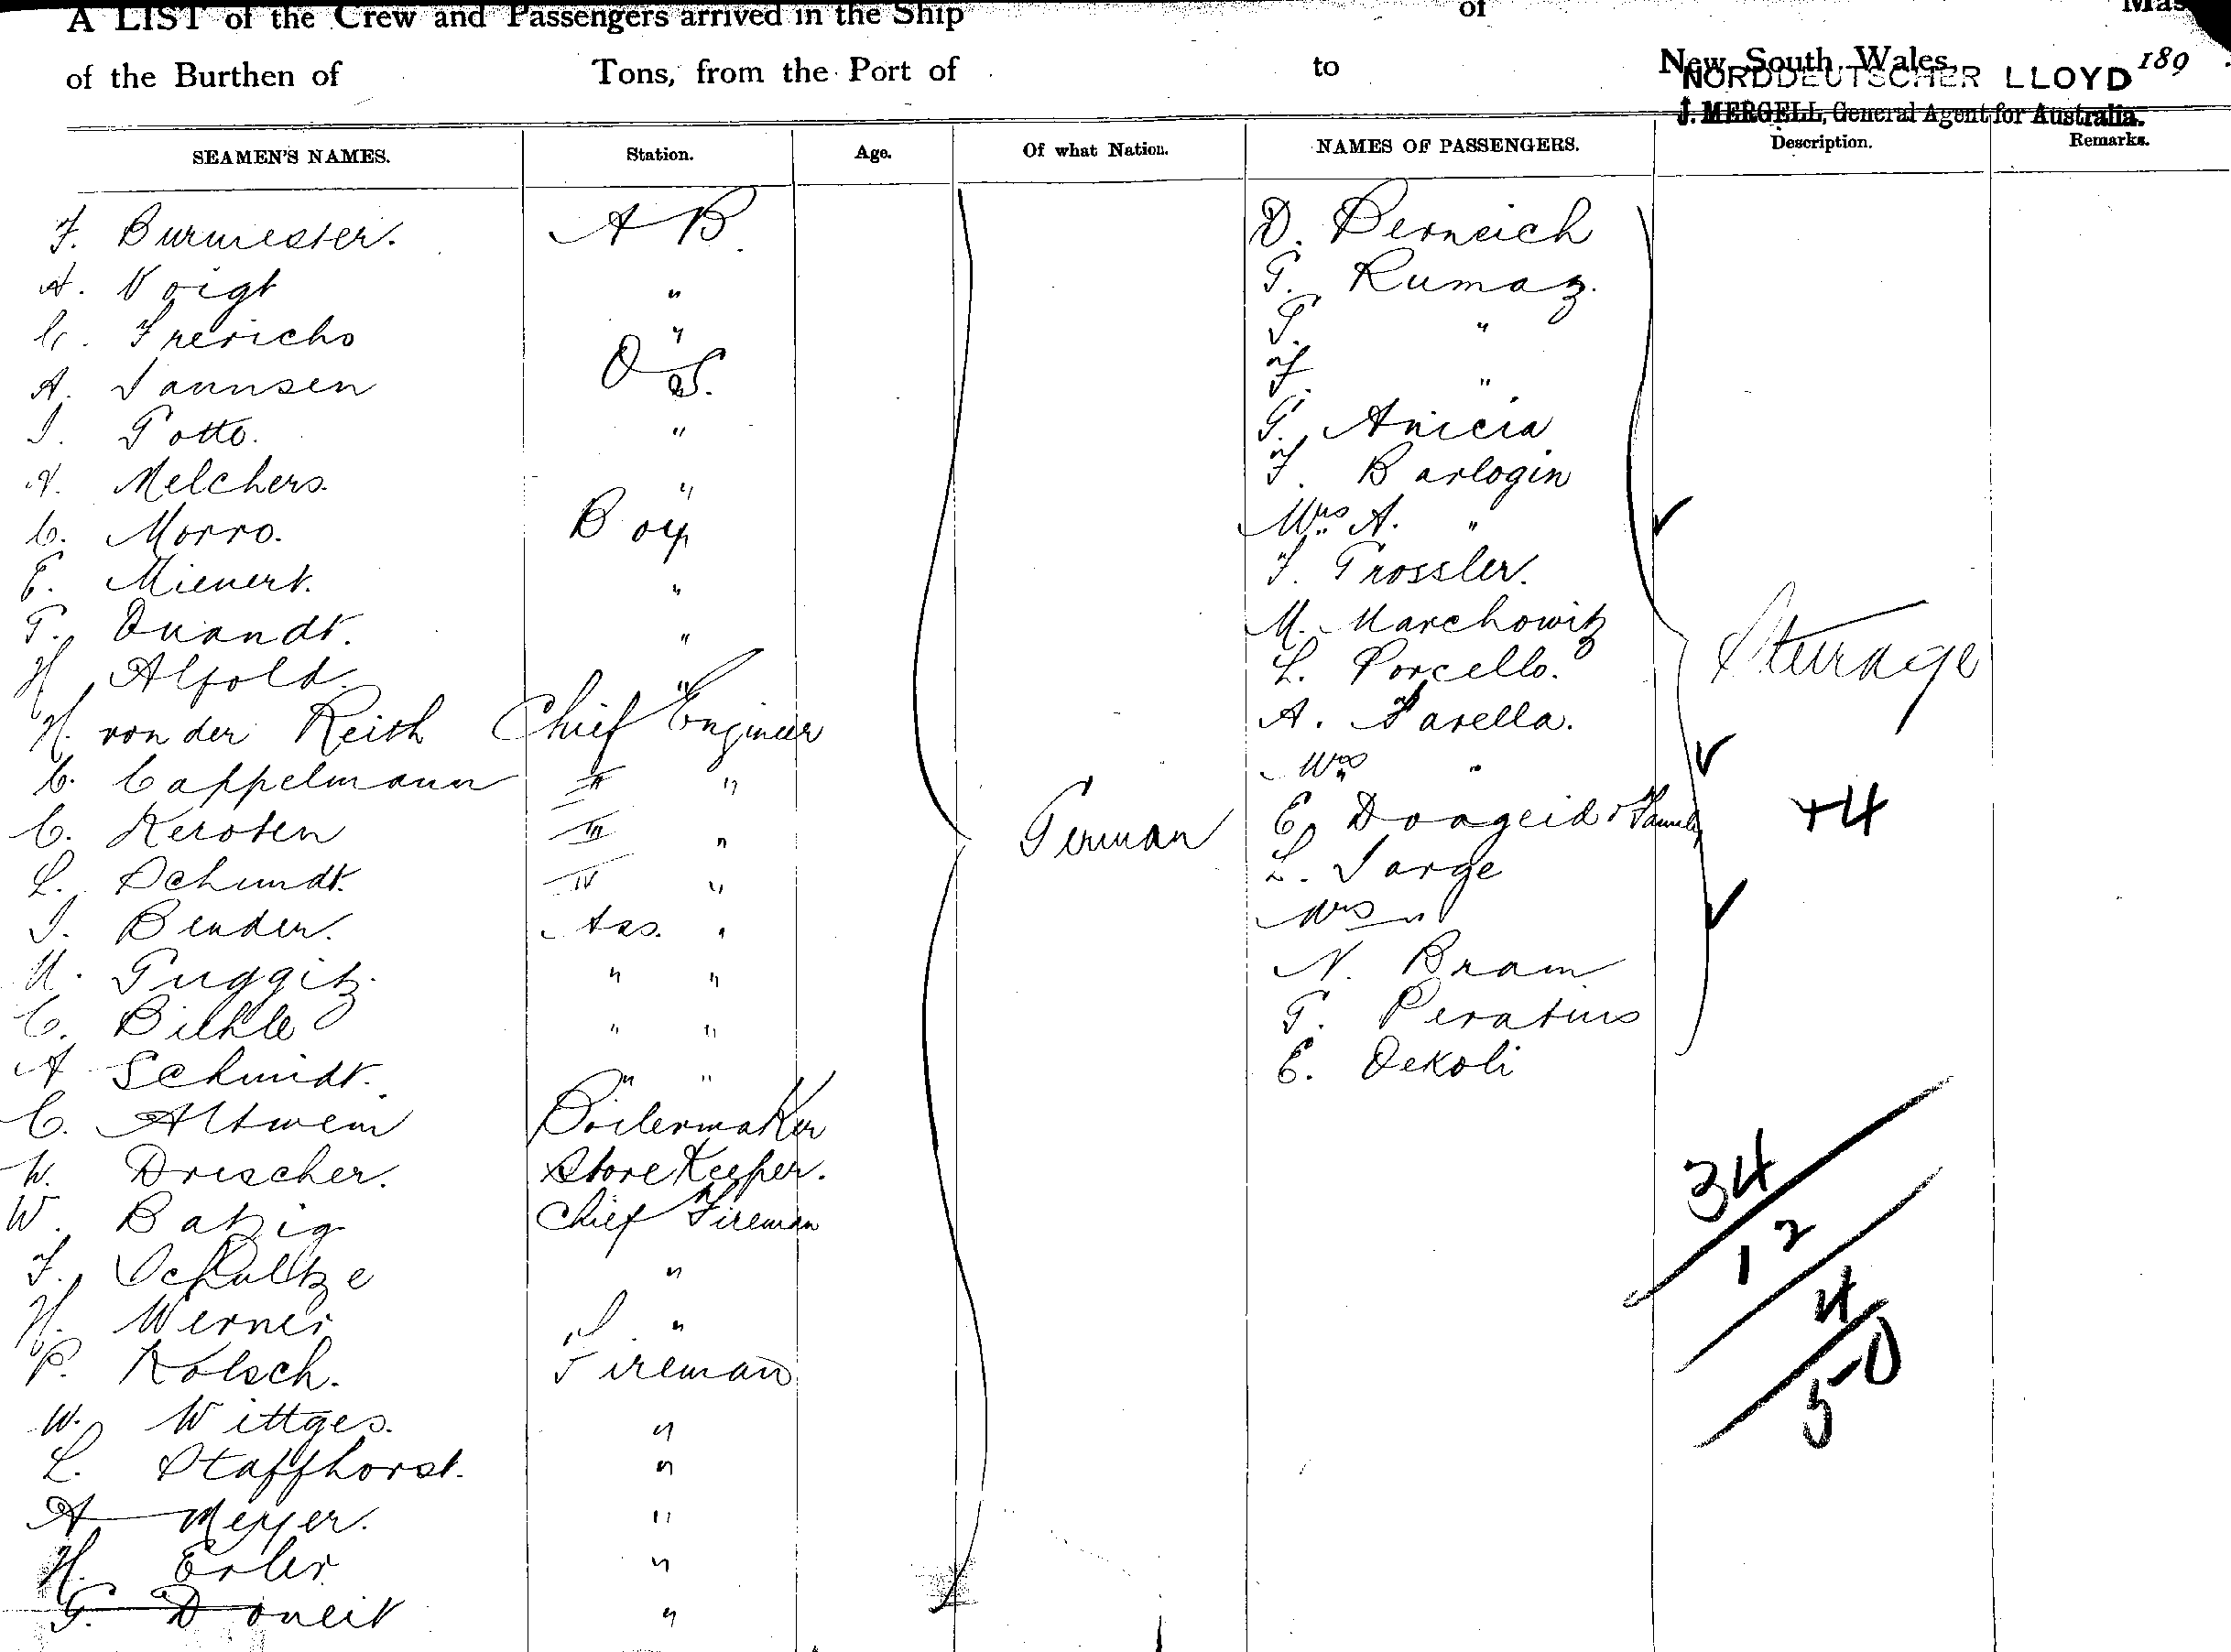 A LIST of the Crew and Passengers arrived in the Ship of Mas
of the Burthen of Tons, from the Port of to New South Wales, 189
NORDDEUTSCHER LLOYD
J. MERGELL, General Agent for Australia.
SEAMEN'S NAMES. Station. Age. Of what Nation. NAMES OF PASSENGERS. Description. Remarks.
F. Burmester. A B. D. Perneich
A. Voigt " G. Rumaz.
C. Frerichs " G. "
A. Jannsen O S. F. "
J. Gotto. " G. Anicia
A. Melchers. " F. Barlogin
C. Morro. Boy Mrs A. "
E. Mienert. " F. Grossler.
G. Quandt. " M. Marchowitz
H. Alfold. " L. Porcello.
H. von der Reith Chief Engineer A. Farella.
C. Cappelmann II " Mrs "
C. Kersten III " German E. Doageid & Family +4
L. Schmidt. IV " L. Jarge
J. Bender. Ass. " Mrs "
M. Guggitz. " " N. Bram
C. Biehle " " G. Peratius
A Schmidt. " " E. Dekoli
Steurage
C. Altwein Boilermaker
W. Drescher. Store Keeper. 34
W. Batzig Chief Fireman 12
F. Schultze " 4
H. Werner " 50
P. Kolsch. Fireman
W. Wittges. "
L. Staffhorst. "
A Meyer. "
H. Erler "
G. Doneit "